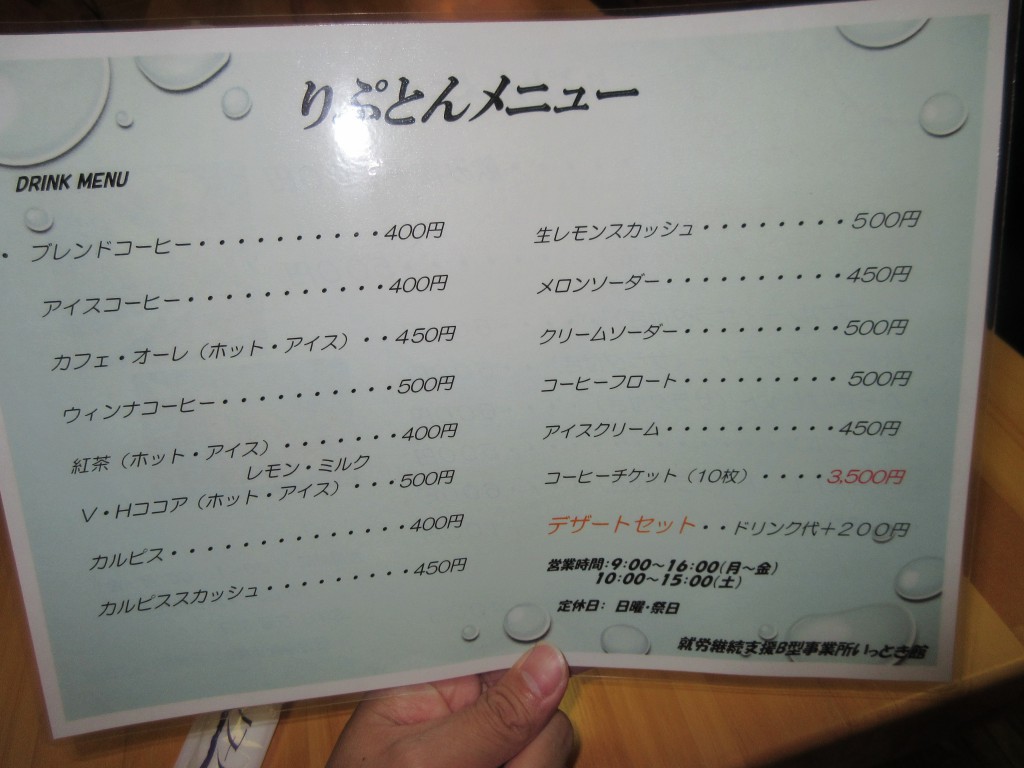 りぷとんメニュー
DRINK MENU
・ブレンドコーヒー・・・・・・・・・・400円
アイスコーヒー・・・・・・・・・・・400円
カフェ・オーレ（ホット・アイス）・・450円
ウィンナコーヒー・・・・・・・・・500円
紅茶（ホット・アイス）・・・・・・・400円
レモン・ミルク
V・Hココア（ホット・アイス）・・・500円
カルピス・・・・・・・・・・・・400円
カルピススカッシュ・・・・・・・・・450円
生レモンスカッシュ・・・・・・・・500円
メロンソーダー・・・・・・・・・・450円
クリームソーダー・・・・・・・・・500円
コーヒーフロート・・・・・・・・・500円
アイスクリーム・・・・・・・・・・450円
コーヒーチケット（10枚）・・・・3,500円
デザートセット・・ドリンク代＋２００円
営業時間：9:00～16:00(月～金)
10:00～15:00(土)
定休日： 日曜・祭日
就労継続支援B型事業所いっとき館